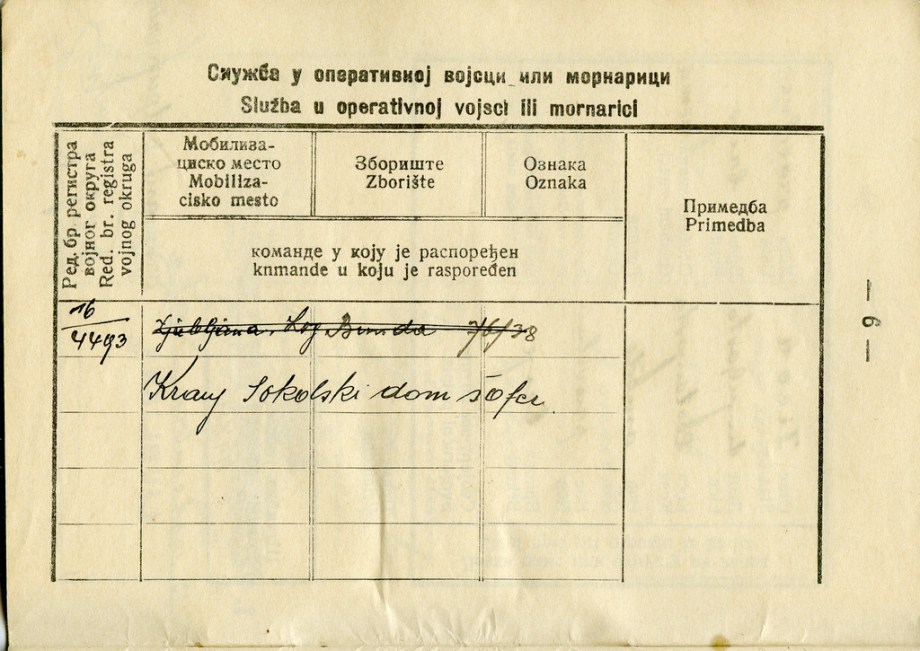 Служба у оперативној војсци или морнарици
Služba u operativnoj vojsci ili mornarici
Ред. бр. регистра
војног округа
Red. br. registra
vojnog okruga
Мобилиза-
циско место
Mobiliza-
cisko mesto
Збориште
Zborište
Ознака
Oznaka
команде у коју је распоређен
knmande u koju je raspoređen
Примедба
Primedba
16
4493
Ljubljana, Log 38
Kranj Sokolski dom šofer
— 9 —